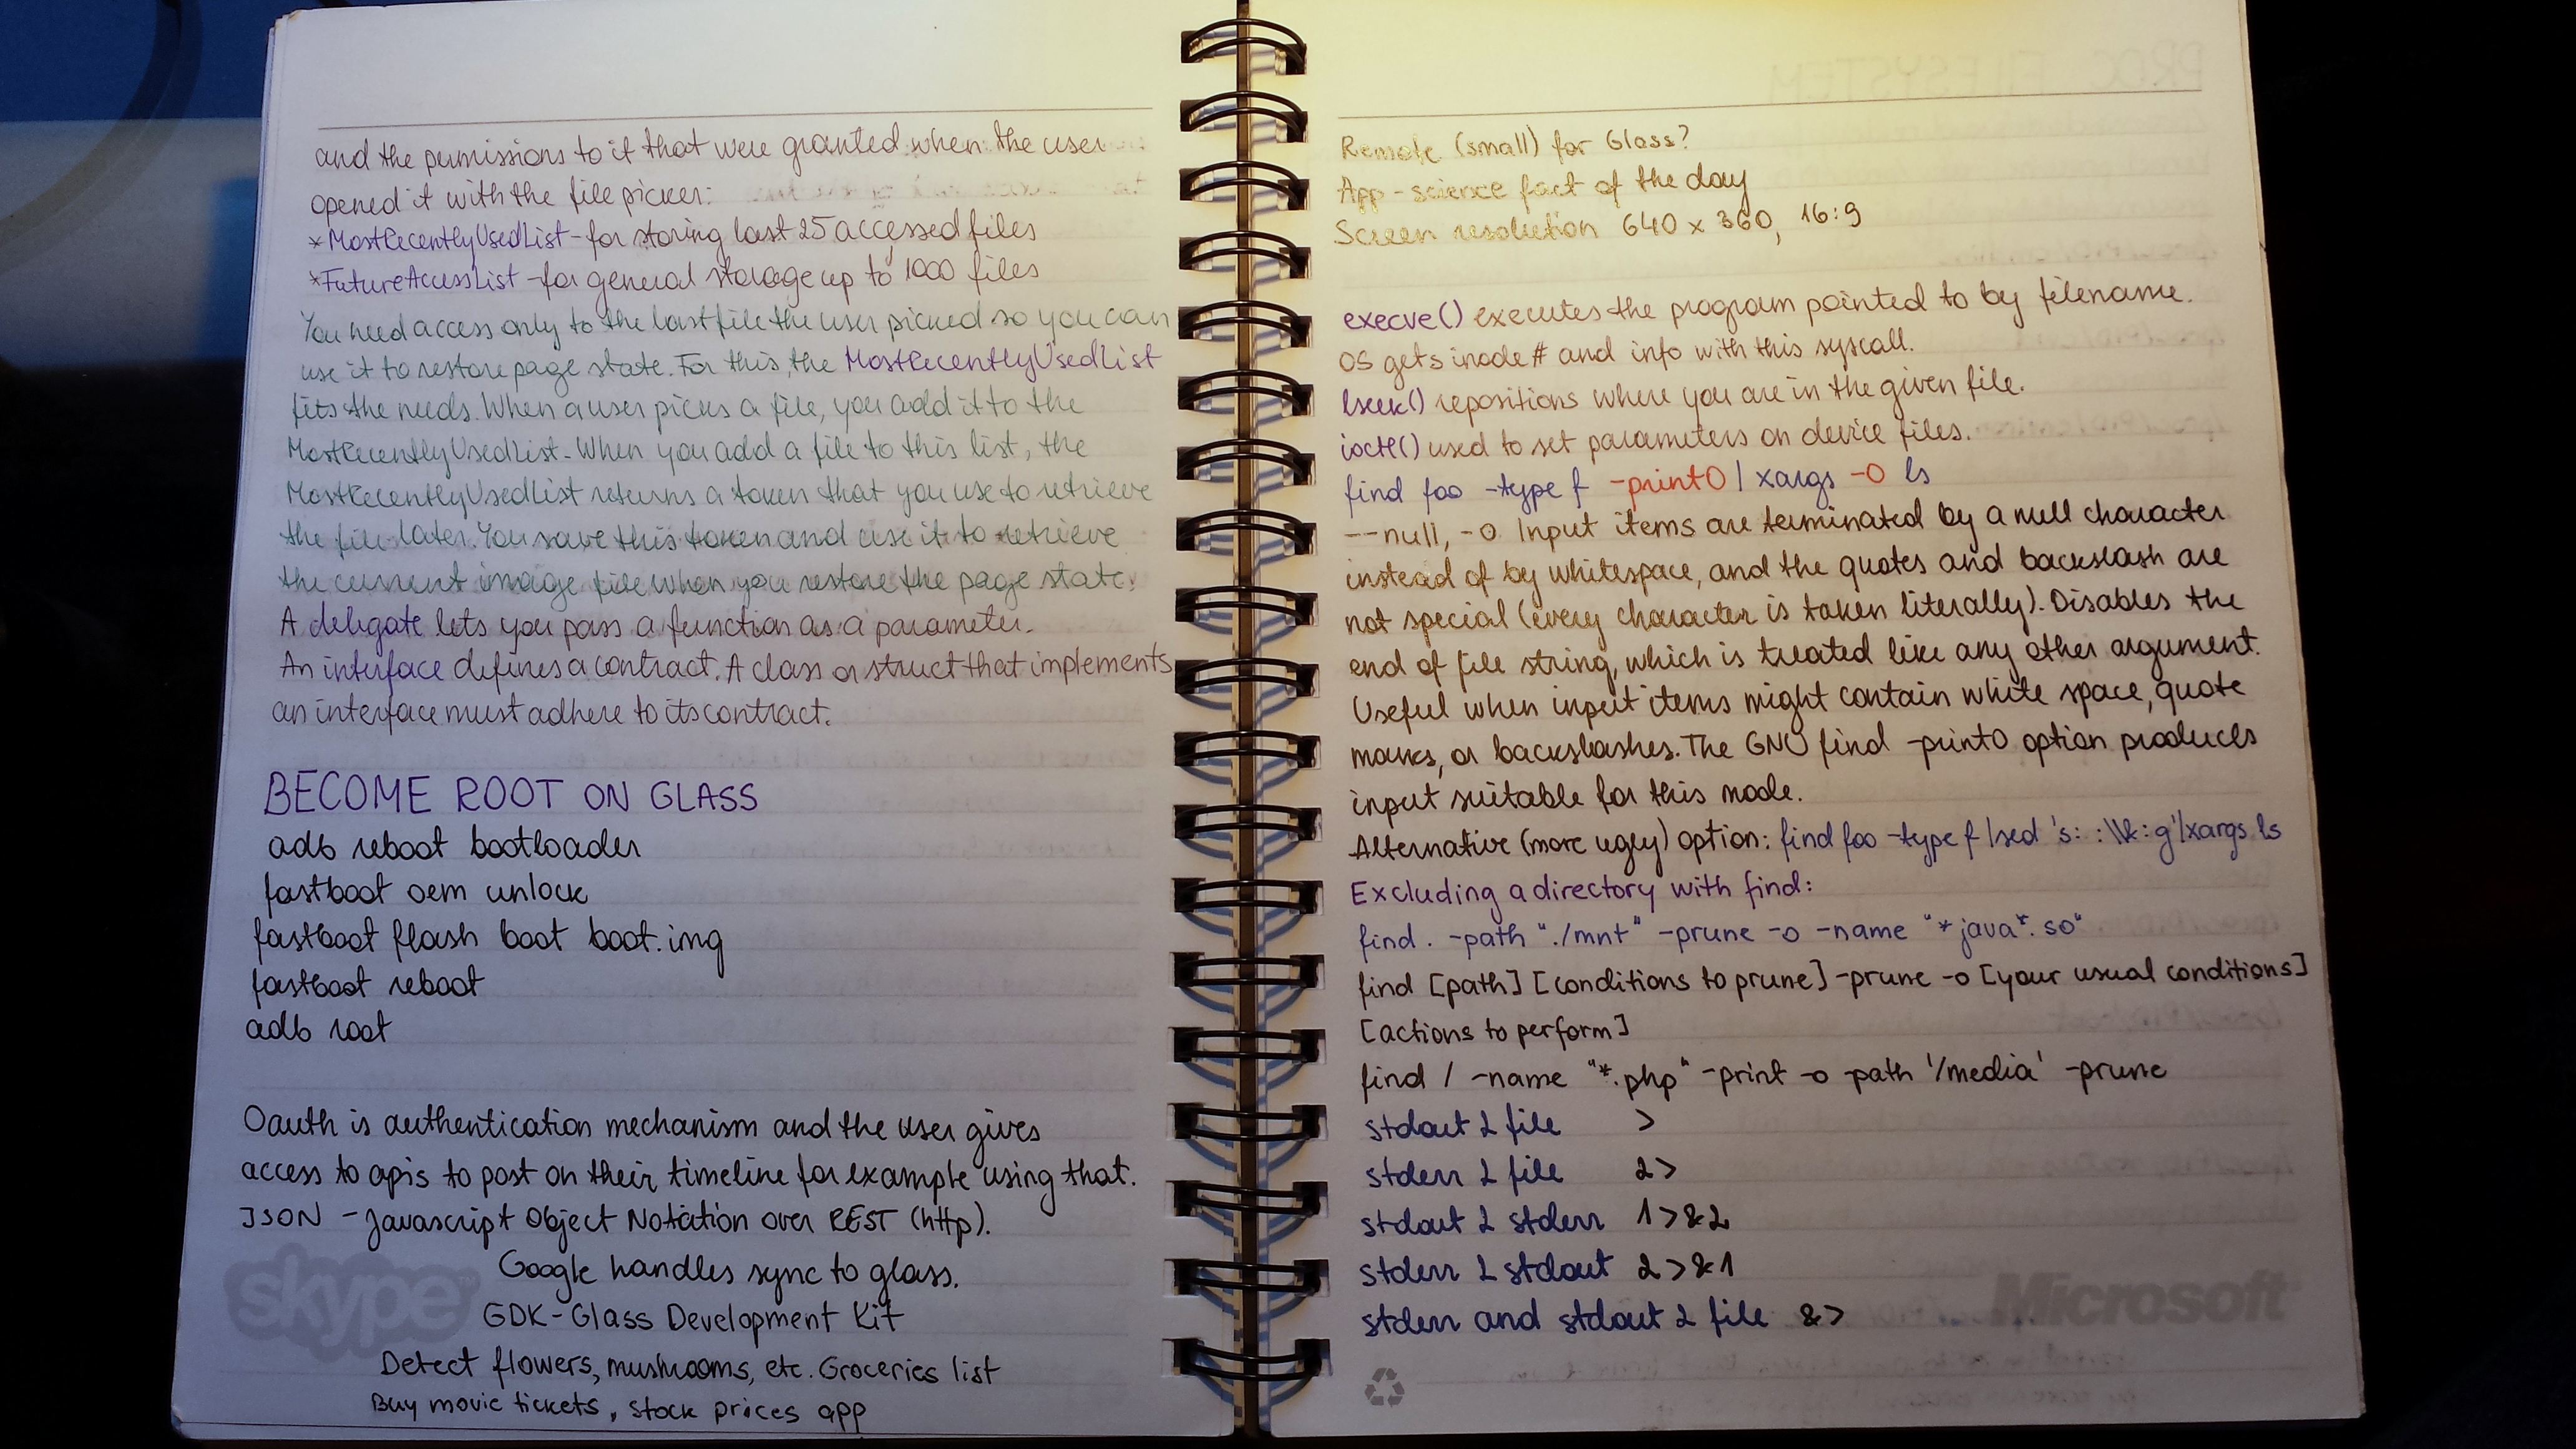 and the permissions to it that were granted when the user
opened it with the file picker:
*MostRecentlyUsedList - for storing last 25 accessed files
*FutureAccessList - for general storage up to 1000 files
You need access only to the last file the user picked so you can
use it to restore page state. For this, the MostRecentlyUsedList
fits the needs. When a user picks a file, you add it to the
MostRecentlyUsedList. When you add a file to this list, the
MostRecentlyUsedList returns a token that you use to retrieve
the file later. You save this token and use it to retrieve
the current image file when you restore the page state.
A delegate lets you pass a function as a parameter.
An interface defines a contract. A class or struct that implements
an interface must adhere to its contract.
BECOME ROOT ON GLASS
adb reboot bootloader
fastboot oem unlock
fastboot flash boot boot.img
fastboot reboot
adb root
Oauth is authentication mechanism and the user gives
access to apis to post on their timeline for example using that.
JSON - Javascript Object Notation over REST (http).
Google handles sync to glass.
GDK - Glass Development Kit
Detect flowers, mushrooms, etc. Groceries list
Buy movie tickets, stock prices app
skype
Remote (small) for Glass?
App - science fact of the day
Screen resolution 640 x 360, 16:9
execve() executes the program pointed to by filename.
OS gets inode # and info with this syscall.
lseek() repositions where you are in the given file.
ioctl() used to set parameters on device files.
find foo -type f -print0 | xargs -0 ls
--null, -0 Input items are terminated by a null character
instead of by whitespace, and the quotes and backslash are
not special (every character is taken literally). Disables the
end of file string, which is treated like any other argument.
Useful when input items might contain white space, quote
marks, or backslashes. The GNU find -print0 option produces
input suitable for this mode.
Alternative (more ugly) option: find foo -type f | sed 's: :\\&:g' | xargs ls
Excluding a directory with find:
find . -path "./mnt" -prune -o -name "*java*.so"
find [path] [conditions to prune] -prune -o [your usual conditions]
[actions to perform]
find / -name "*.php" -print -o -path '/media' -prune
stdout 2 file >
stderr 2 file 2>
stdout 2 stderr 1>&2
stderr 2 stdout 2>&1
stderr and stdout 2 file &>
Microsoft